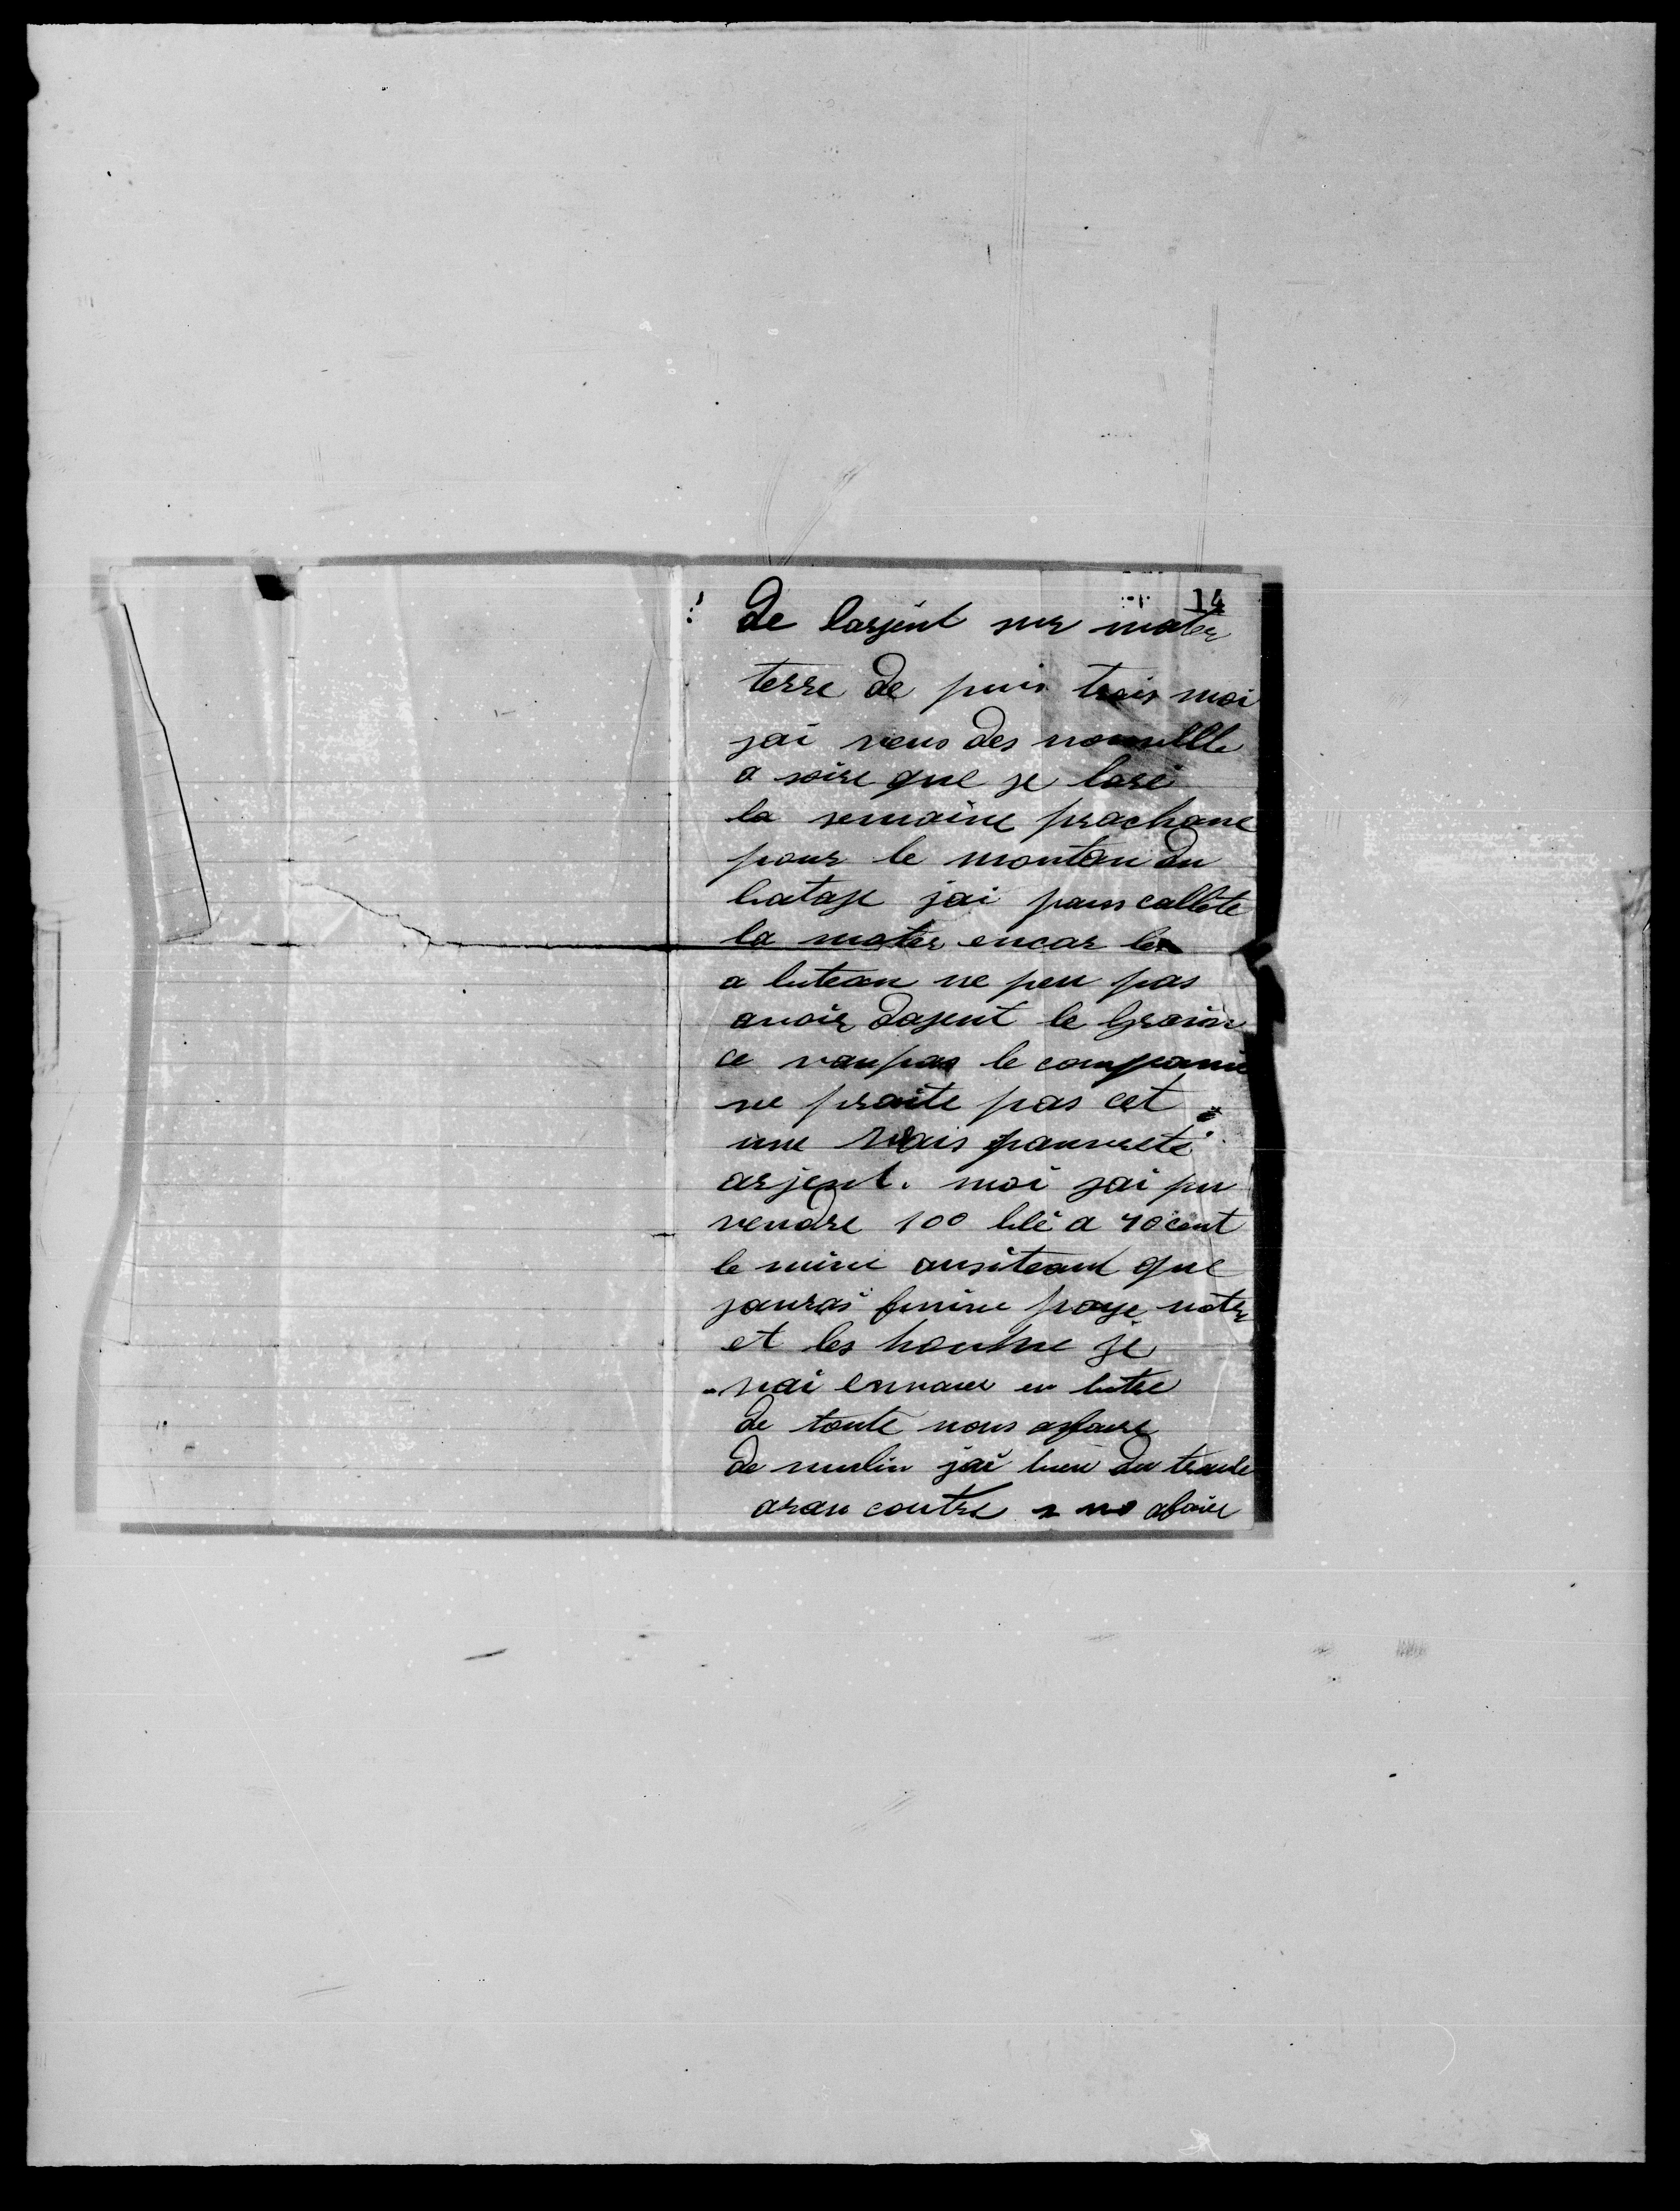 14
de larjent sur mater
terre de puis trois moi
jai reus des nouvelle
a soire que je larè
la semaine prochane
pour le montan du
batage jai pans callete
la moter encor les
a bitean ne peu pas
avoir dajent le Grain
ce vau pas le compani
ne praite pas cet
une vrais pauvreté
arjent. moi jai pu
vendre 100 blé a 40 cent
le mine ausiteaut que
jaurai finine paye noter
et les homme je
vai envauer en letre
de toute nous afaire
de mulin jai bien du truble
aran contre no afaire